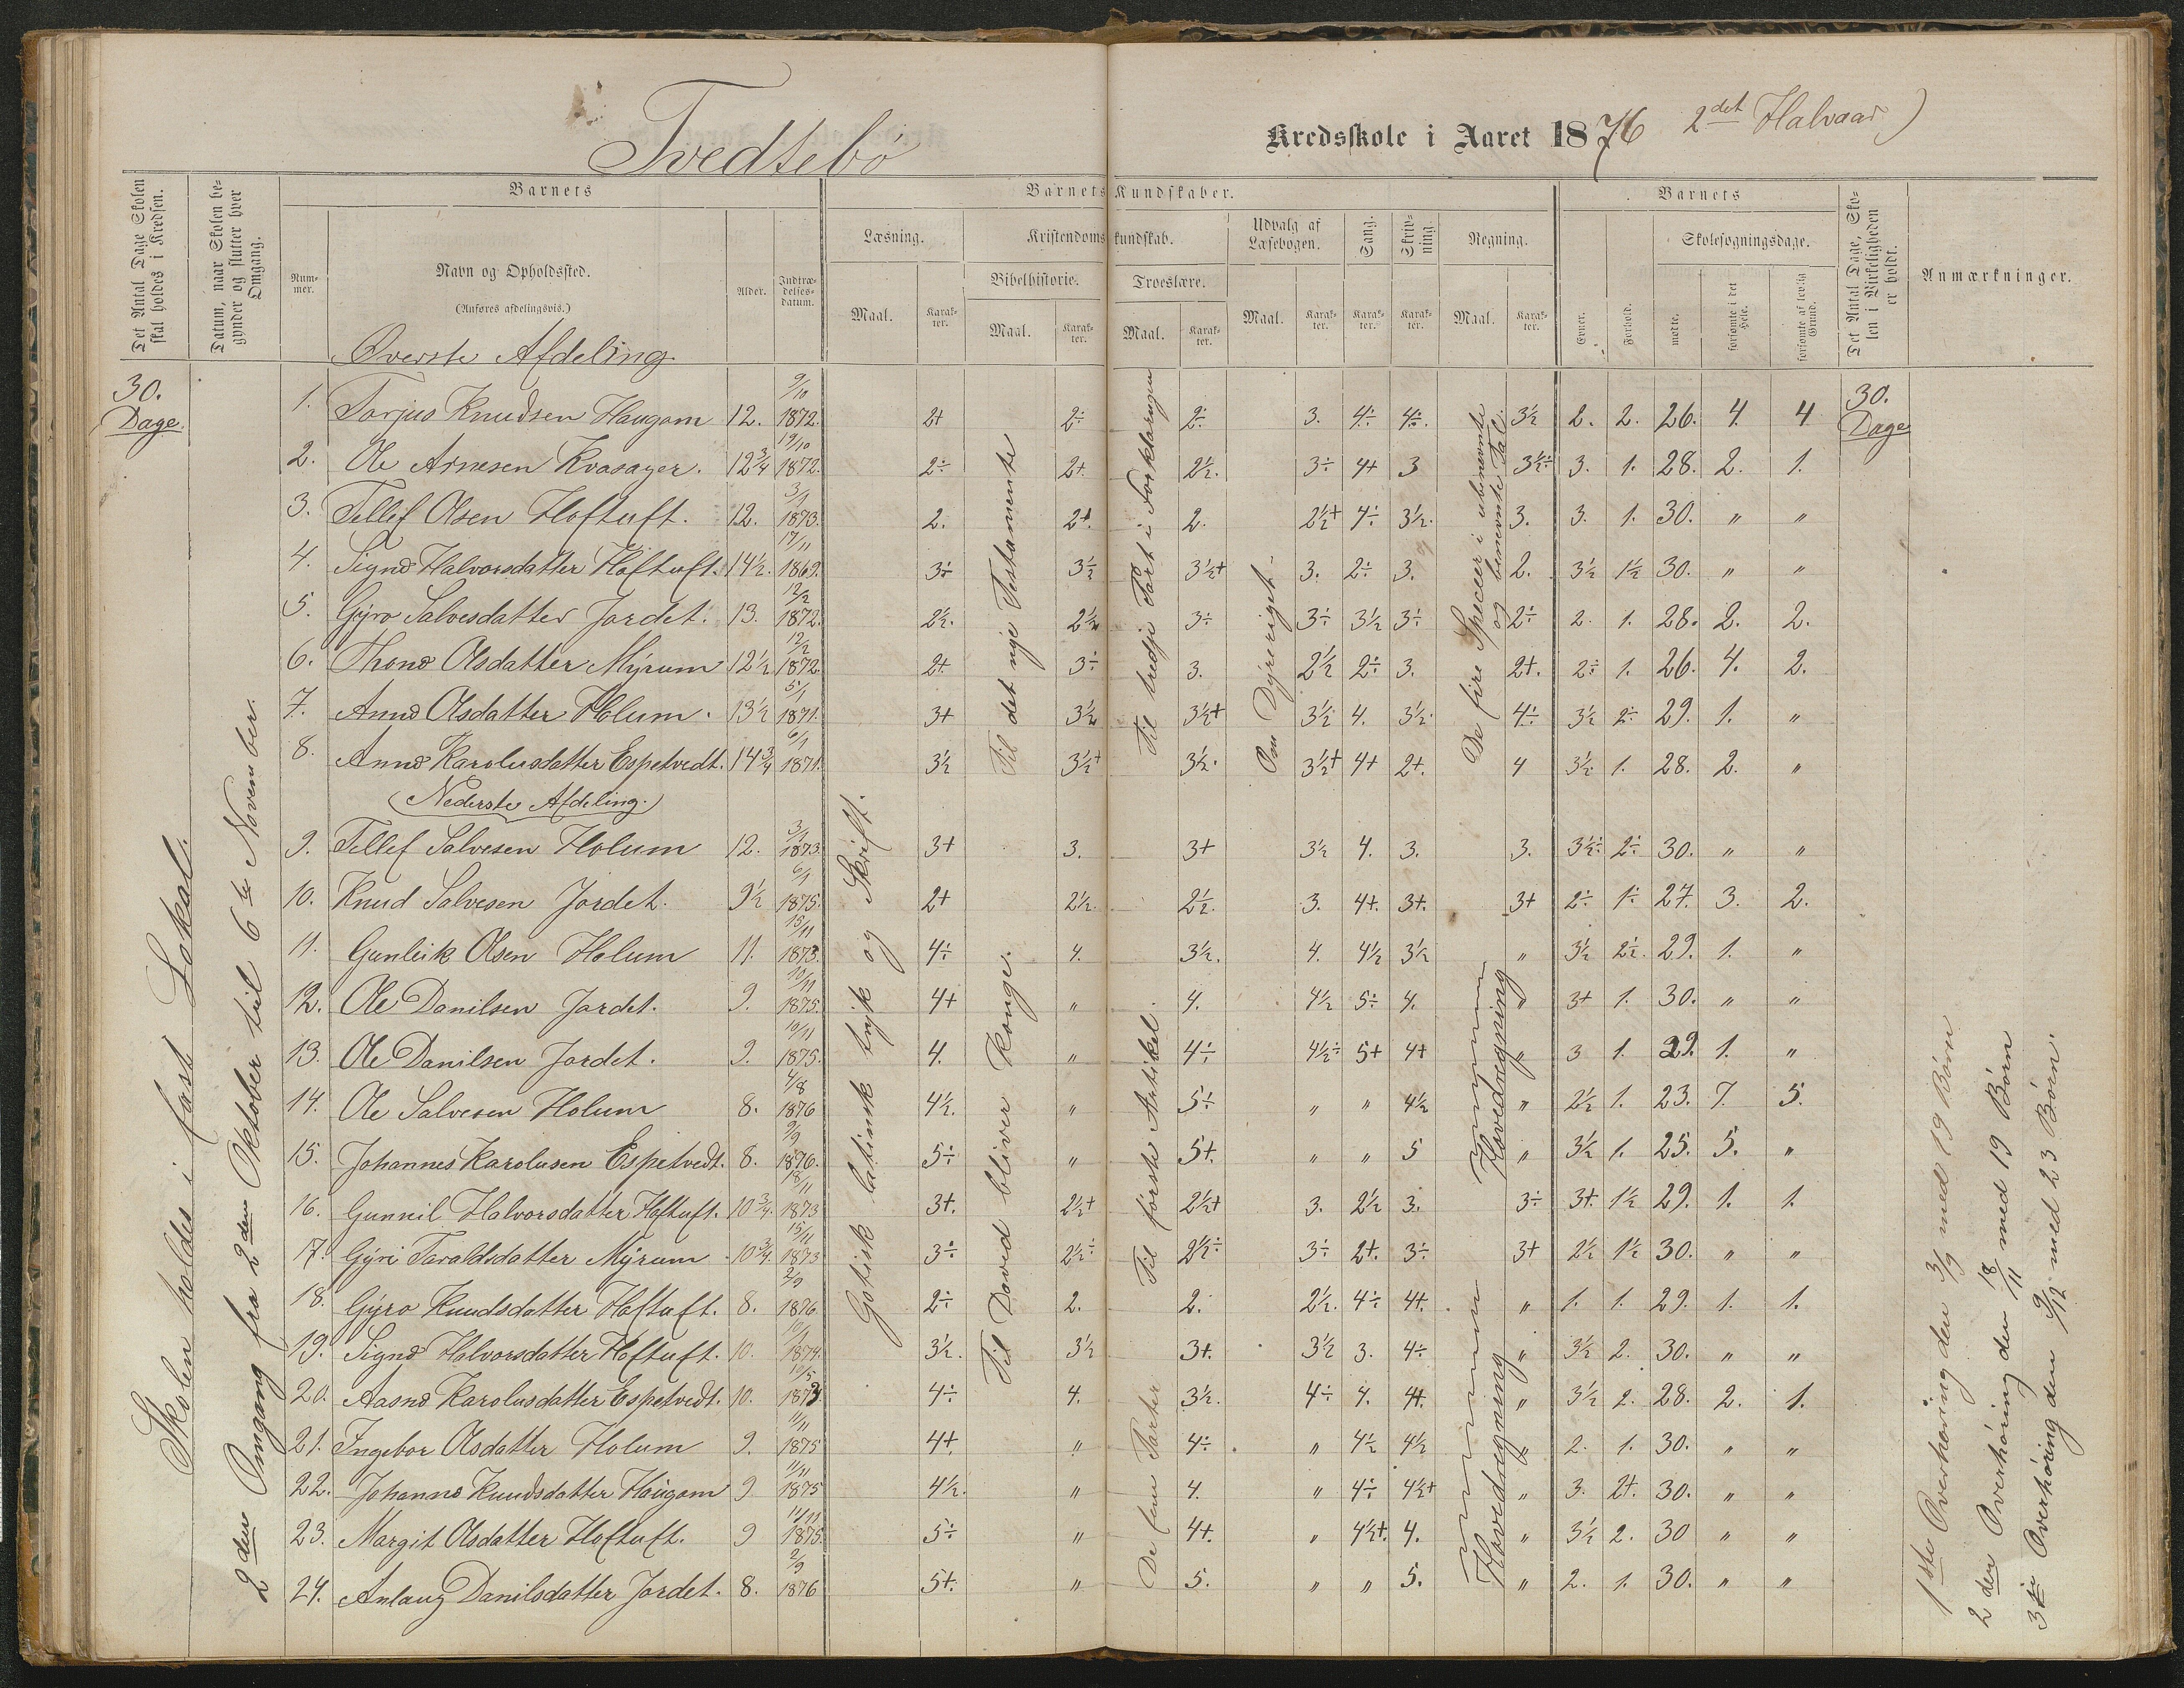 Tvedtebø Kredsskole i Aaret 1876 2det Halvaar)
Det Antal Dage Skolen skal holdes i Kredsen.
Datum, naar Skolen begynder og slutter hver Omgang.
Barnets
Nummer.
Navn og Opholdssted.
(Anføres afdelingsvis.)
Alder.
Indtrædelsesdatum.
Barnets Kundskaber.
Læsning.
Maal. Karakter.
Kristendomskundskab.
Bibelhistorie.
Maal. Karakter.
Troeslære.
Maal. Karakter.
Udvalg af Læsebogen.
Maal. Karakter.
Sang.
Karakter.
Skrivning.
Karakter.
Regning.
Maal. Karakter.
Barnets
Evner.
Forhold.
Skolesøgningsdage.
mødte.
forsømte i det Hele.
forsømte af lovlig Grund.
Det Antal Dage, Skolen i Virkeligheden er holdt.
Anmærkninger.
Øverste Afdeling
30. Dage.
1. Torjus Knudsen Haugom 12. 9/10 1872. 2+ 2÷ 2÷ 3. 4÷ 4÷. 3½ 2. 2. 26. 4. 4 30. Dage
2. Ole Arnesen Kvasager. 12¾ 19/10 1872. 2÷ 2+. 2½. 3÷ 4+ 3 3½÷ 3. 1. 28. 2. 1.
3. Tellef Olsen Hoftuft. 12. 3/1 1873. 2. 2+. 2. 2½+ 4÷ 3½. 3. 3. 1. 30. " "
4. Signe Halvorsdatter Hoftuft. 14½. 17/11 1869. 3÷ 3½ 3½+ 3. 2÷ 3. 2. 3½ 1½ 30. " "
5. Gyro Salvesdatter Jordet. 13. 12/2 1872. 2½. 2½ 3÷ 3÷ 3½ 3÷ 2÷ 2. 1. 28. 2. 2.
6. Thone Olsdatter Myrum 12½ 12/2 1872. 2+. 3÷ 3. 2½ 2÷ 3. 2+. 2÷ 1. 26. 4. 2.
7. Anne Olsdatter Holum. 13½ 5/1 1871. 3+ 3½ 3½+ 3½ 4. 3½. 4÷ 3½ 2÷ 29. 1. "
8. Anne Karolusdatter Espetvedt. 14¾ 6/1 1871. 3½ 3½+ 3½. 3½+ 4+ 2+. 4 3½. 1. 28. 2. "
(Nederste Afdeling.)
9. Tellef Salvesen Holum 12. 3/1 1873. 3+ 3. 3+ 3½ 4. 3. 3. 3½÷ 2÷ 30. " "
10. Knud Salvesen Jordet. 9½ 6/1 1875. 2+ 2½. 2½. 3. 4+. 3+. 3+ 2÷ 1÷ 27. 3. 2.
11. Gunleik Olsen Holum 11. 13/11 1873. 4÷ 4. 3½. 4. 4½ 3½ " 3½ 2÷. 29. 1. "
12. Ole Danilsen Jordet. 9. 10/11 1875. 4+ " 4. 4½ 5÷ 4. " 3+ 1. 30. " "
13. Ole Danilsen Jordet. 9. 19/11 1875. 4. " 4÷ 4½÷ 5+ 4+ " 3 1. 29. 1. "
14. Ole Salvesen Holum 8. 4/8 1876 4½. " 5÷ " " 4½ " 2½ 1. 23. 7. 5.
15. Johannes Karolusen Espetvedt. 8. 9/9 1876. 5÷ " 5+. " " 5 " 3½ 1. 25. 5. "
16. Gunneil Halvorsdatter Hoftuft. 10¾. 18/11 1873 3+. 2½+ 2½+ 3. 2½ 3. 3÷ 3+. 1½ 29. 1. 1.
17. Gyri Taraldsdatter Myrum 10¾. 15/11 1873 3÷ 2½÷ 2½÷ 3÷ 2+. 3÷ 3+ 2½ 1½ 30. " "
18. Gyro Knudsdatter Hoftuft. 8. 2/9 1876. 2÷ 2. 2. 2½. 4÷ 4+. " 1. 1. 29. 1. 1.
19. Signe Halvorsdatter Hoftuft. 10. 1874. 3½. 3½ 3+. 3½ 3. 4÷ " 3½ 2. 30. " "
20. Aasne Karolusdatter Espetvedt. 10. 10/5 1873 4÷ 4. 3½. 4÷ 4. 4+. " 3½ 2. 28. 2. 1.
21. Ingebor Olsdatter Holum 9. 11/11 1875 4+. " 4÷ " 4½ 4½ " 2. 1. 30. " "
22. Johanne Knudsdatter Haugom 9 11/11 1875 4½. " 4. " 4÷ 4½+ " 3. 2+. 30. " "
23. Margit Olsdatter Hoftuft. 9 11/11 1875. 5÷ " 4+. " 4½+. 4. " 3½ 2. 30 " "
24. Anlaug Danilsdatter Jordet. 8. 2/9 1876 5+. " 5. " " 5. " 2. 1. 30. " "
Skolen holdes i fast Lokal.
2den Omgang fra 2den Oktober til 6te November.
Gotisk latinsk tryk og Skrift.
Til det nye Testamente
Til David bliver Konge.
Til tredje Part i Forklaringen
Til første Artikel.
De fem Parter
Om Dyreriget.
De fire Specier i ubenevnte og benevnte Tal.
Hovedregning
Hovedregning
1ste Overhøring den 3/9 med 19 Børn
2den Overhøring den 18/11 med 19 Børn
3die Overhøring den 9/12 med 23 Børn.